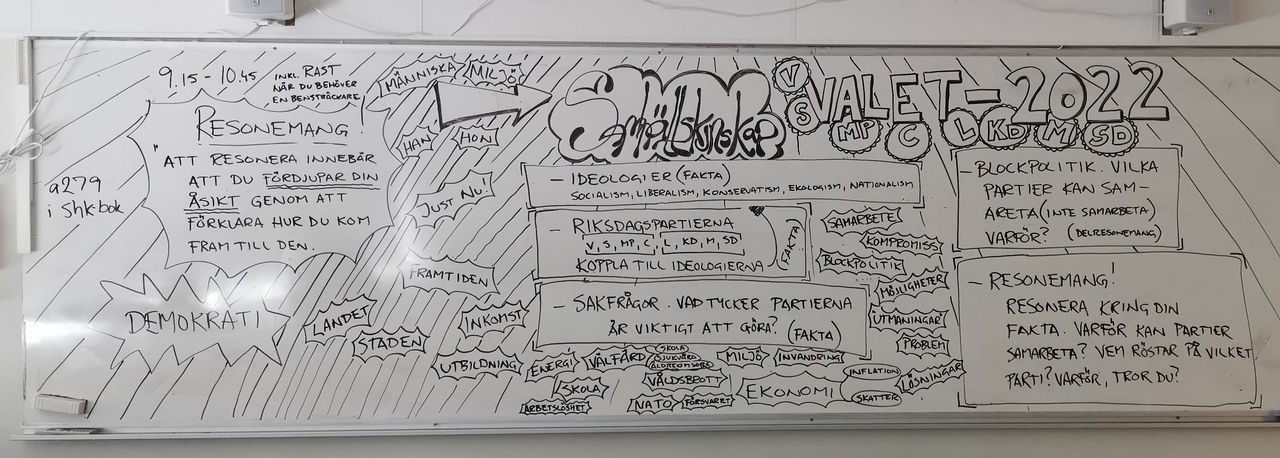 9.15 – 10.45
INKL. RAST
NÄR DU BEHÖVER
EN BENSTRÄCKARE
RESONEMANG!
"ATT RESONERA INNEBÄR
ATT DU FÖRDJUPAR DIN
ÅSIKT GENOM ATT
FÖRKLARA HUR DU KOM
FRAM TILL DEN.
a279
i Shk-bok
DEMOKRATI
MÄNNISKA
MILJÖ
HAN
HON
JUST NU.
FRAMTIDEN
LANDET
STADEN
INKOMST
UTBILDNING
ENERGI
VÄLFÄRD
SKOLA
SJUKVÅRD
ÄLDREOMSORG
MILJÖ
INVANDRING
SKOLA
VÅLDSBROTT
ARBETSLÖSHET
NATO
FÖRSVARET
EKONOMI
INFLATION
SKATTER
LÖSNINGAR
Samhällskunskap
VALET – 2022
V
S
MP
C
L
KD
M
SD
– IDEOLOGIER (FAKTA)
SOCIALISM, LIBERALISM, KONSERVATISM, EKOLOGISM, NATIONALISM
– RIKSDAGSPARTIERNA
V, S, MP, C, L, KD, M, SD
KOPPLA TILL IDEOLOGIERNA
(FAKTA)
– SAKFRÅGOR. VAD TYCKER PARTIERNA
ÄR VIKTIGT ATT GÖRA? (FAKTA)
SAMARBETE
KOMPROMISS
BLOCKPOLITIK
MÖJLIGHETER
UTMANINGAR
PROBLEM
– BLOCKPOLITIK. VILKA
PARTIER KAN SAM–
ARETA (INTE SAMARBETA)
VARFÖR? (DELRESONEMANG)
– RESONEMANG!
RESONERA KRING DIN
FAKTA. VARFÖR KAN PARTIER
SAMARBETA? VEM RÖSTAR PÅ VILKET
PARTI? VARFÖR, TROR DU?